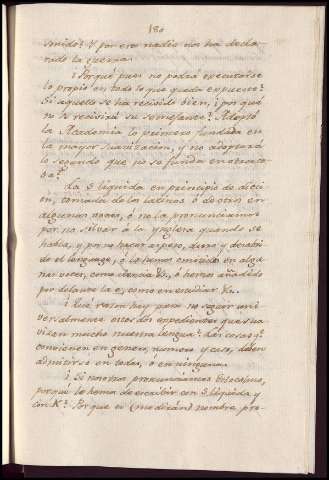 180
vinido? Y por eso nadie nos ha decla-
rado la guerra.
¿Porqué pues no podrá executarse
lo propio en todo lo que queda expuesto?
Si aquello se ha recivido bien, ¿por qué
no se recivirá su semejante? Adoptó
la Academia lo primero fundada en
la mayor suavización, y no adoptará
lo segundo que no se funda en otra co-
sa?
La S líquida en principio de dicci-
on, tomada de los latinos ó de otros en
algunas voces, ó no la pronunciamos
por no silvar á la Ynglesa quando se
habla, y por no hacer áspero, duro y desabri-
do el lenguage, ó la hemos omitido en algu-
nas voces, como ciencia &c, ó hemos añadido
por delante la e, como en escudiar &c.
¿Qué razon hay para no seguir uni-
versalmente estos dos expedientes que sua-
vizan mucho nuestra lengua? Las cosas q.e
convienen en genero, numero y caso, deben
admitirse en todas, ó en ninguna.
¿Si nosotros pronunciamos Estocolmo,
porqué lo hemos de escribir con S líquida y
con K? Porque es (me dirán) nombre pro-